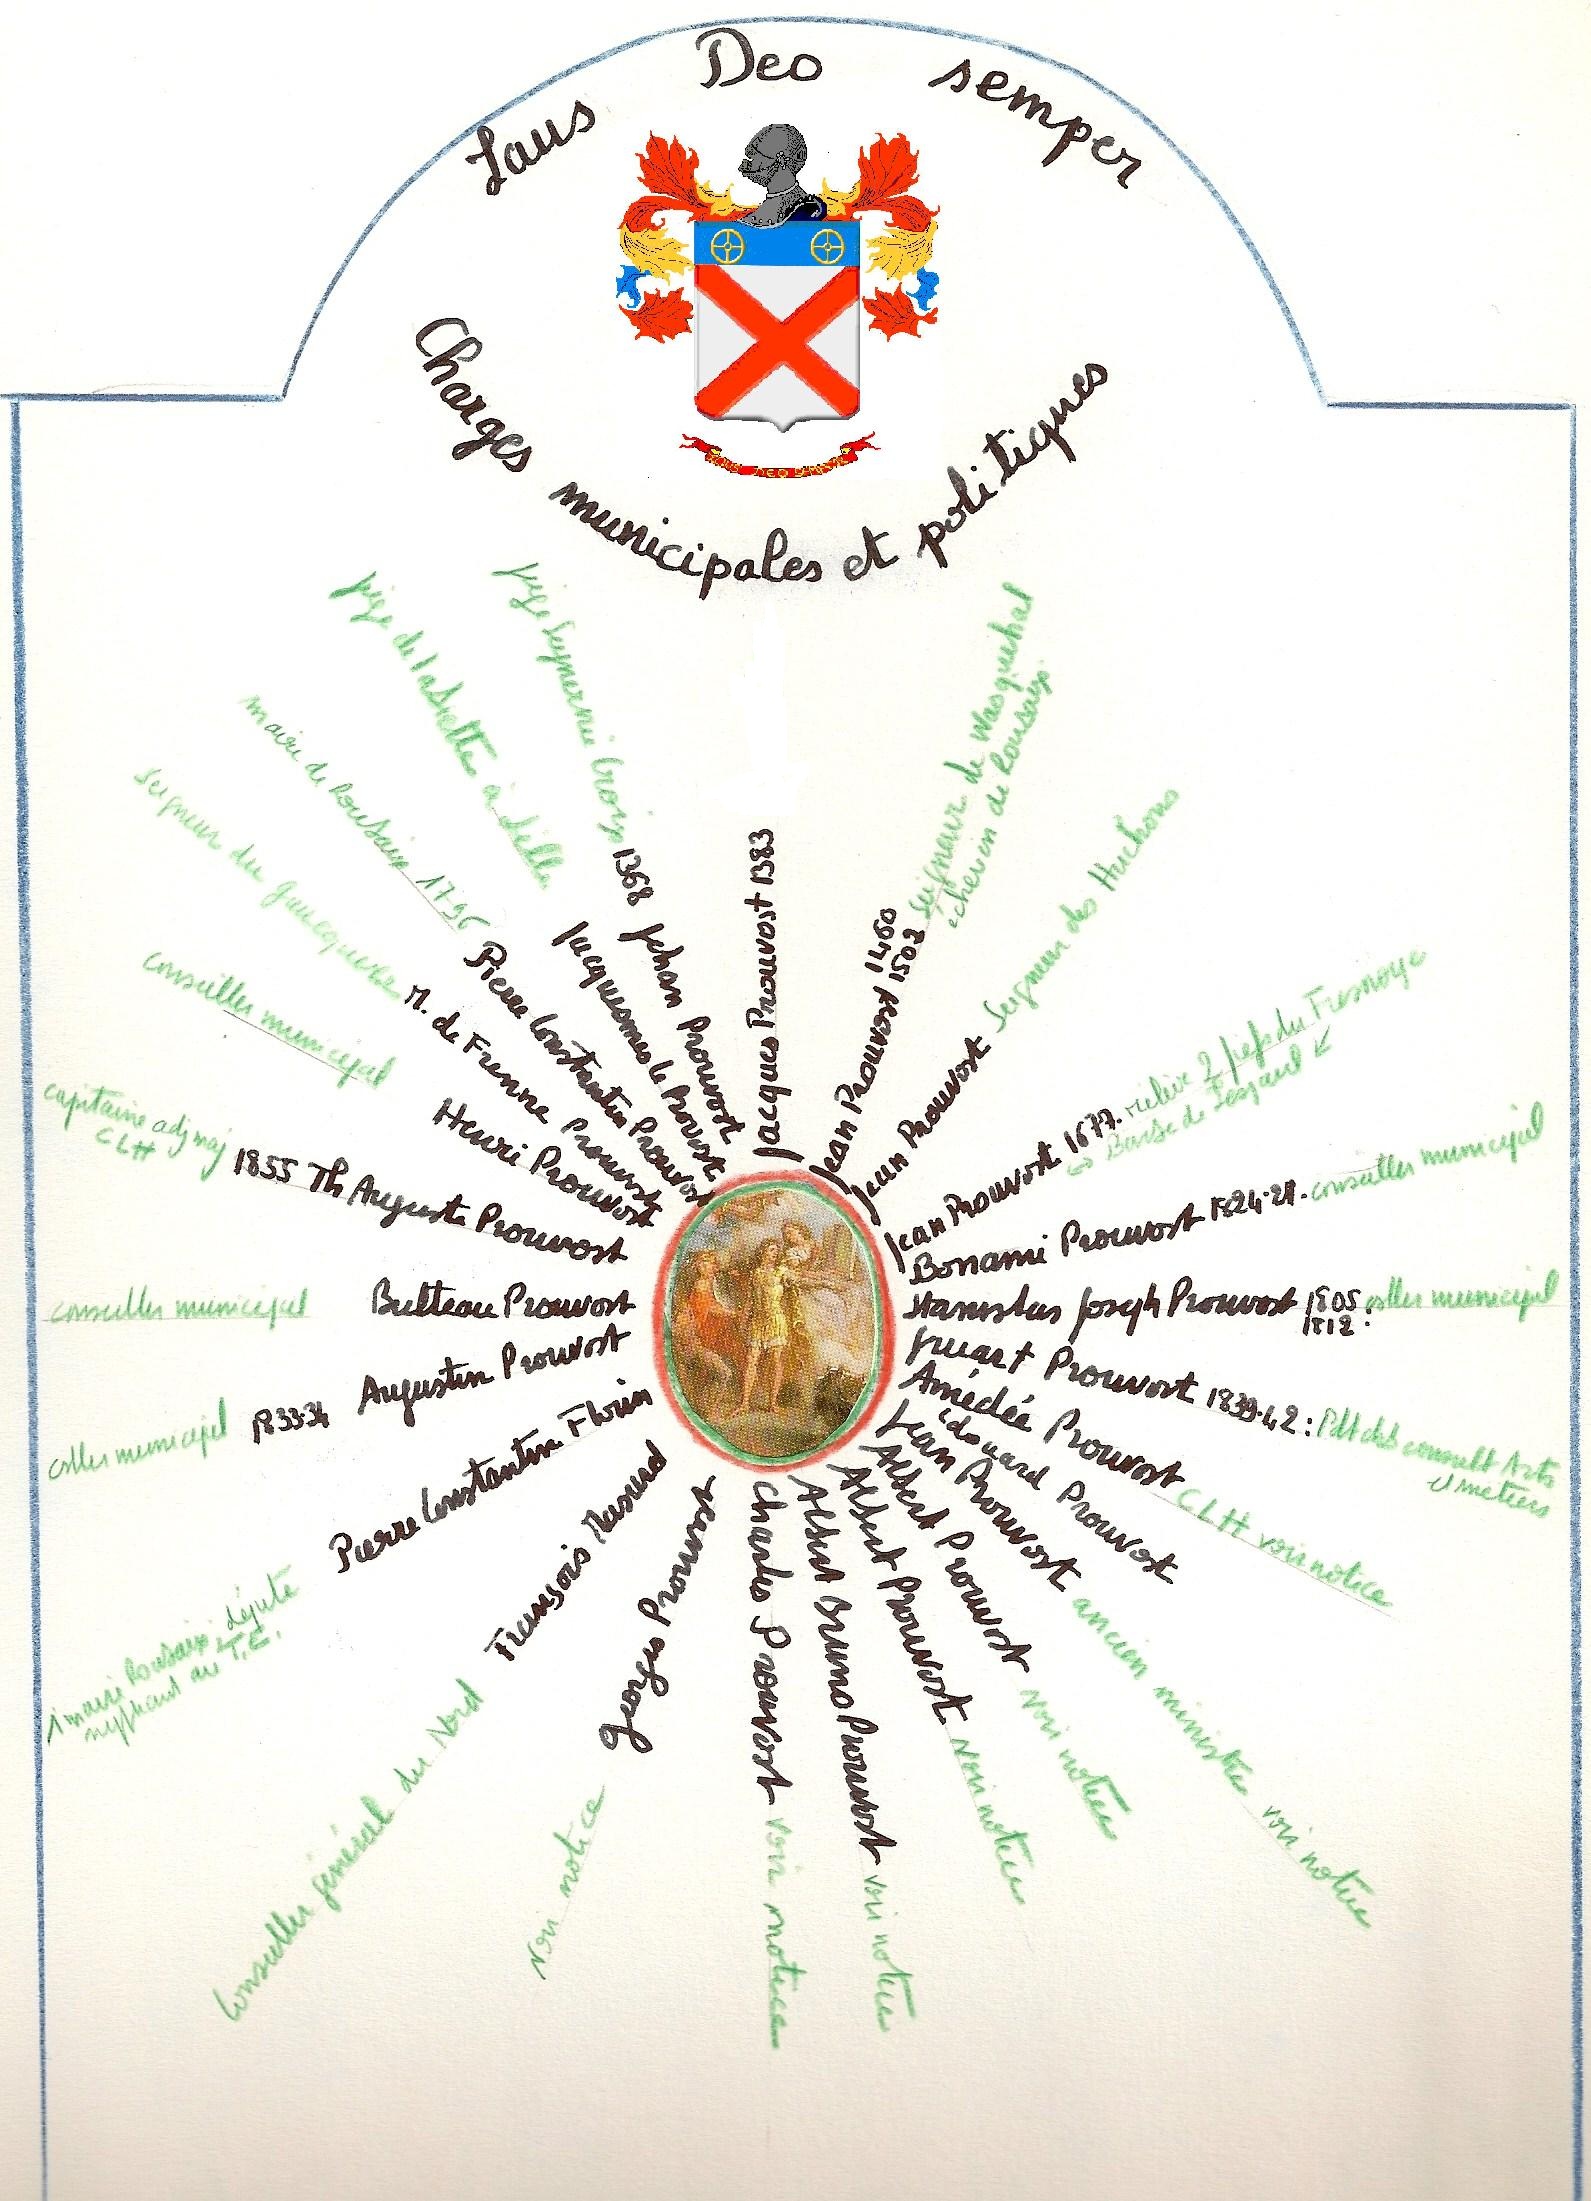 Laus Deo semper
LAUS DEO SEMPER
Charges municipales et politiques
Jacques Prouvost 1383
Jean Prouvost 1460
1502 seigneur de Wasquehal
échevin de Roubaix
Jean Prouvost seigneur des Huchons
Jean Prouvost 1677. relève 2 fiefs du Fresnoye
Barbe de
Bonami Prouvost 1824-21. conseiller municipal
Stanislas Joseph Prouvost 1805 cstller municipal
1812 :
Prouvost 1839-42 : Pdt chb consult Arts
et metiers
Amédée Prouvost CLH voir notice
Edouard Prouvost
Jean Prouvost ancien ministre voir notice
Albert Prouvost voir notice
Albert Prouvost voir notice
Albert Bruno Prouvost voir notice
Charles Prouvost voir notice
Georges Prouvost voir notice
François Masurel Conseiller général du Nord
Pierre Constantin Florin
1 maire Roubaix, député
au T.E.
Augustin Prouvost 1833-34 cstller municipal
Bulteau Prouvost conseiller municipal
1855 Th Auguste Prouvost
capitaine adj maj
CLH
Henri Prouvost conseiller municipal
M. de Frenne Prouvost seigneur du
Pierre Constantin Prouvost maire de Roubaix 1796
Jacquesmes le Provost juge de la à Lille
Jehan Prouvost 1368 juge seigneurie